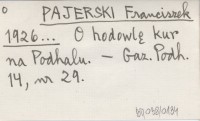 o
PAJERSKI Franciszek
1926... O hodowlę kur
na Podhalu. – Gaz. Podh.
14, nr 29.